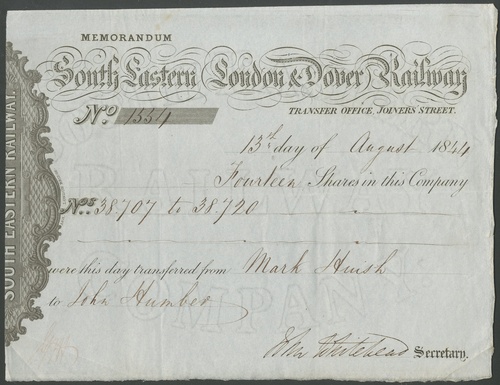 MEMORANDUM
South Eastern London & Dover Railway
No 1554
TRANSFER OFFICE, JOINERS STREET.
13th day of August 1844
Fourteen Shares in this Company
Nos 38.707 to 38.720
were this day transferred from Mark Huish
to John Humber
John Whitehead Secretary.
SOUTH EASTERN RAILWAY.